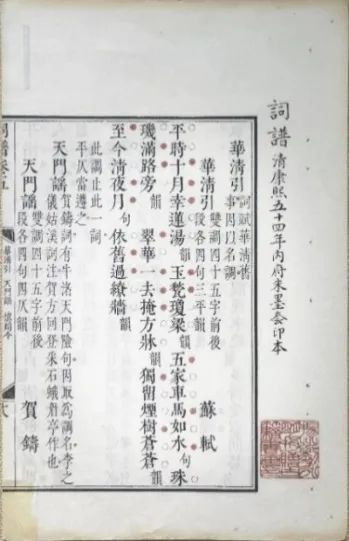 詞譜 清康熙五十四年内府朱墨套印本
華清引 詞賦華清舊
事因以名調
華清引 雙調四十五字前後
段各四句三平韻 蘇軾
平時十月幸蓮湯韻玉甃瓊梁韻五家車馬如水句珠
璣滿路旁韻 翠華一去掩方牀韻獨留煙樹蒼蒼韻
至今清夜月句依舊過繚牆韻
此調止此一詞
平仄當遵之
天門謠 賀鑄詞有牛渚天門險句因取為調名李之
儀姑溪詞注賀方回登采石蛾眉亭作也
天門謠 雙調四十五字前後
段各四句四仄韻 賀鑄
詞譜卷五
華清引 天門謠